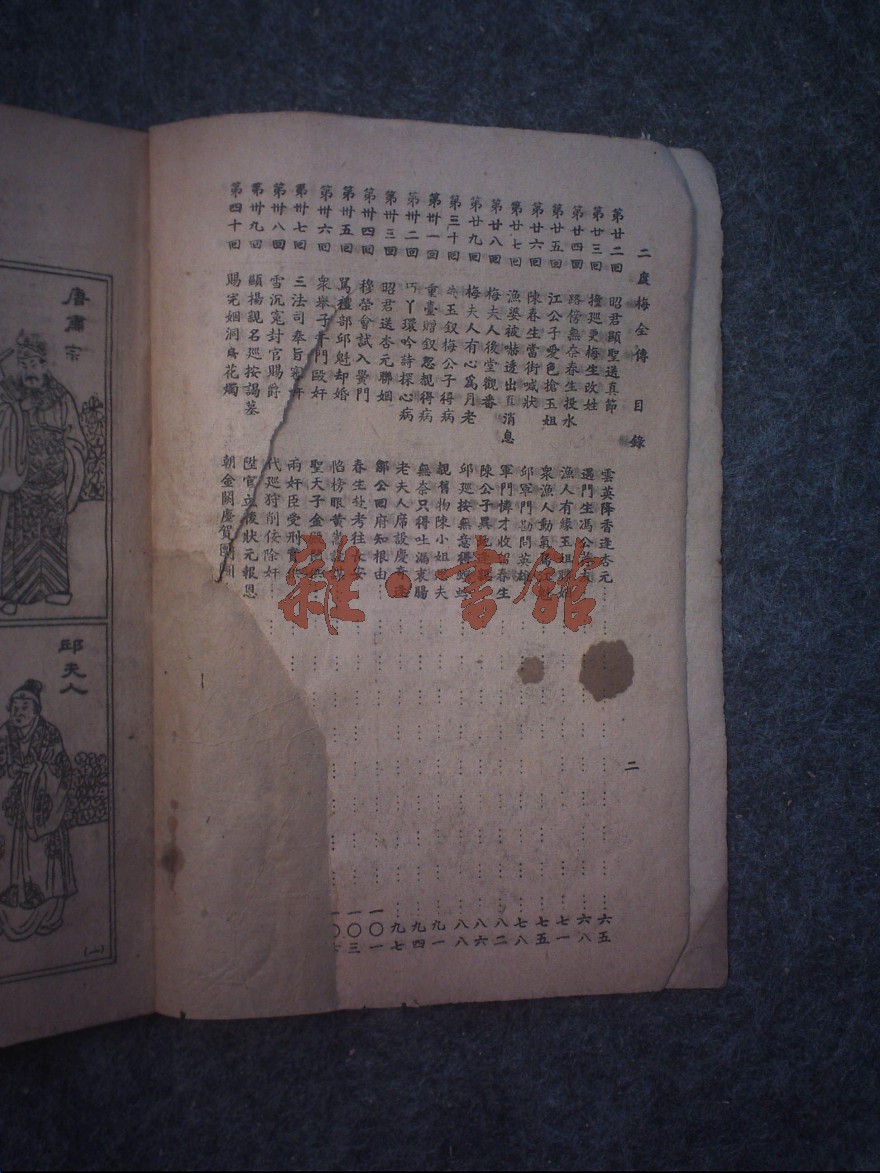 二度梅全傳 目錄 二
第廿二回 昭君顯聖送真節 雲英降香逢杏元 六五
第廿三回 撞巡更梅生改姓 遇門生馮公 六八
第廿四回 路傍無奈春生投水 漁人有緣玉姐 七一
第廿五回 江公子愛色搶玉姐 衆漁人動氣 七五
第廿六回 陳春生當街喊狀 邱軍門勘問英雄 七八
第廿七回 漁婆被嚇透出真消息 軍門憐才收留春生 八二
第廿八回 梅夫人後堂觀香 陳公子異地逢親 八六
第廿九回 梅夫人有心爲月老 邱巡按無意得 八八
第三十回 失玉釵梅公子得病 覩舊物陳小姐 夫 九一
第卅一回 重臺贈釵忽覩得病 無奈只得吐漏衷腸 九四
第卅二回 巧丫環吟詩探心病 老夫人席設慶 九七
第卅三回 昭君送杏元聯姻 鄒公回府知根由 一〇一
第卅四回 穆榮會試入黌門 春生赴考往長安 一〇三
第卅五回 罵禮部邱魁却婚 榜眼黃
第卅六回 衆舉子午門毆奸 聖天子金殿
第卅七回 三法司奉旨 奸 兩奸臣受刑
第卅八回 雪沉冤封官賜爵 代巡狩削侫除奸
第卅九回 顯揚親名巡按謁墓 陞官立後狀元報恩
第四十回 賜完姻洞房花燭 朝金闕慶賀團
唐肅宗
邱夫人
雜·書館